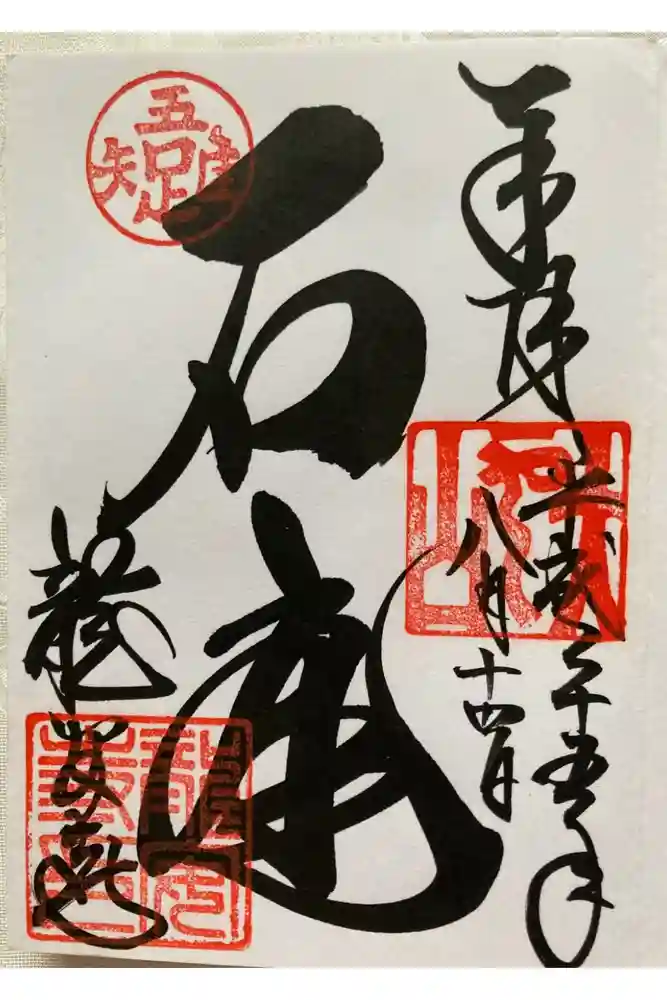 奉拝
平成二十五年
八月十四日
石庭
龍安寺
吾唯足知